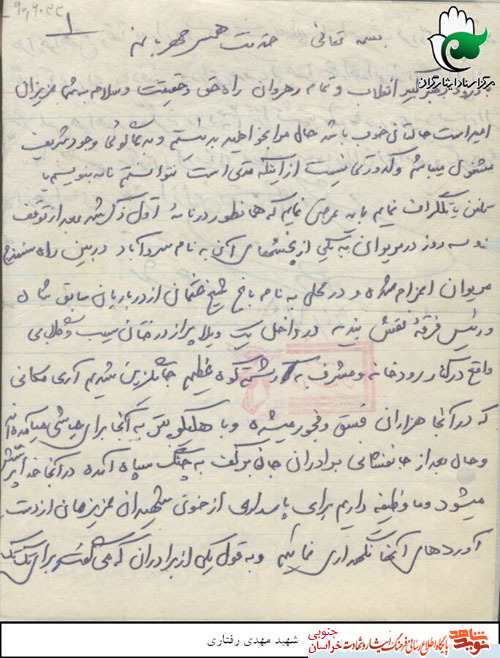 ۱
بسمه تعالی خدمت همسر مهربانم
با درود به رهبر کبیر انقلاب و تمام رهروان راه حق و حقیقت و سلام به شما عزیزان
امید است حالتان خوب باشد حال مرا بخواهید بد نیستم و به دعاگوئی وجود شریف
مشغول میباشم و کدورتی نیست از اینکه مدتی است نتوانستم نامه بنویسم یا
تلفن یا تلگراف نمایم باید عرض نمایم که همانطور در نامه اول ذکر شد بعد از توقف
دو سه روز در مریوان به یکی از بخشهای آن به نام سروآباد در بین راه سنندج
مریوان اعزام شده و در محلی به نام باغ شیخ عثمان از درباریان سابق شاه
و رئیس فرقه نقش بندیه در داخل یک ویلا پر از درختان سیب و گلابی
واقع در کنار رودخانه و مشرف به رشته کوه عظیم جایگزین شدیم آری مکانی
که در آنجا هزاران فسق و فجور میشده و با هلیکوپتر به آنجا برای عیاشی میآمده اند
و حال بعد از جانفشانی برادران جان برکف به چنگ سپاه آمده در آنجا خدا پرستش
میشود و ما وظیفه داریم برای پاسداری از خون شهیدان عزیزمان از دست
آوردهای آنها نگهداری نمائیم و به قول یکی از برادران که می گفت برای تک تک
مرکز اسناد ایثارگران
شهید مهدی رفتاری
نوید شاهد
پایگاه اطلاع رسانی فرهنگ ایثار و شهادت
خراسان جنوبی